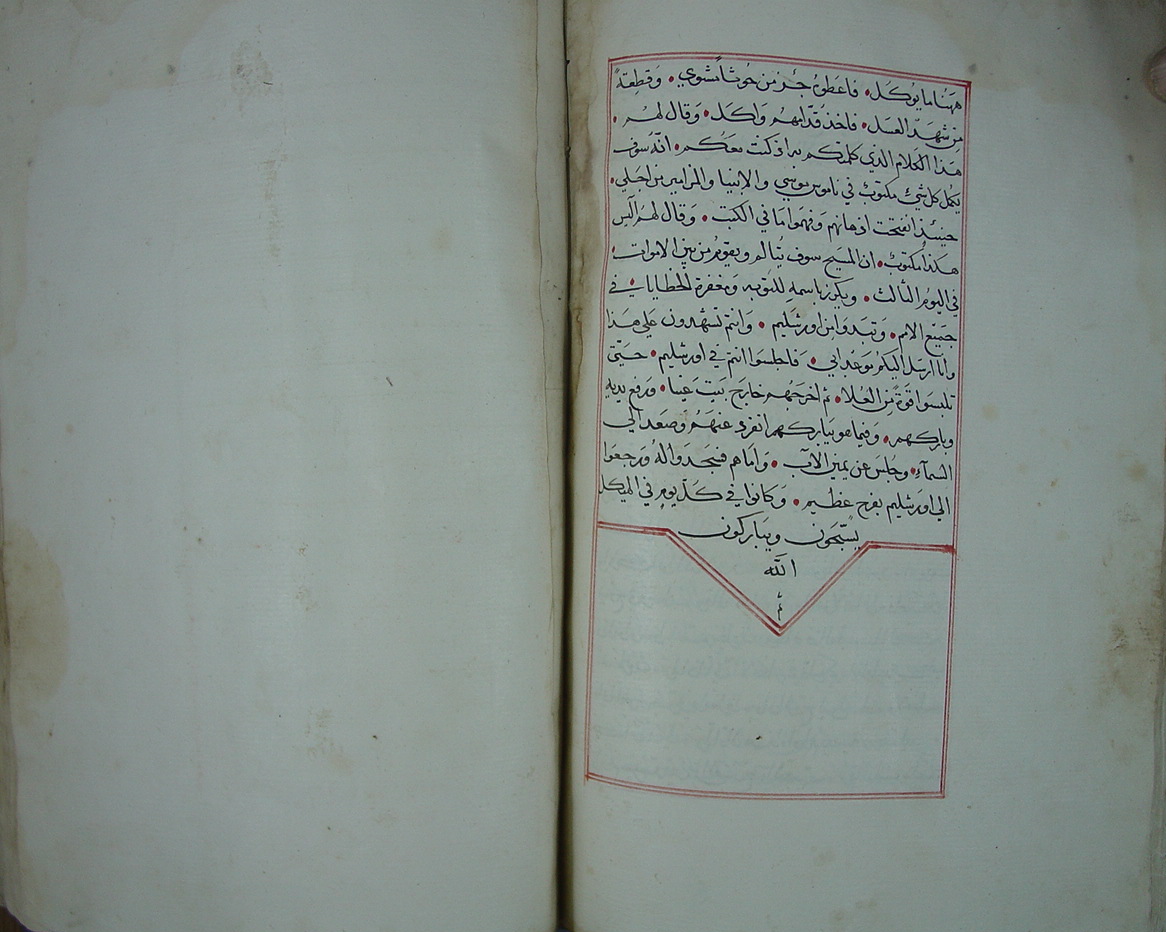 ههنا ما يوكل. فاعطوه جزء من حوتا مشوي. وقطعة
من شهد العسل. فاخذ قدامهم واكل. وقال لهم.
هذا الكلام الذي كلمتكم به اذ كنت معكم. انه سوف
يكمل كل شيء مكتوب في ناموس موسي والانبيا والمزامير من اجلي.
حينئذ انفتحت اذهانهم وفهموا ما في الكتب. وقال لهم اليس
هكذا مكتوب. ان المسيح سوف يتالم ويقوم من بين الاموات.
في اليوم الثالث. ويكرز باسمه للتوبه ومغفرة الخطايا. في
جميع الامم. وتبدوا من اورشليم. وانتم تشهدون علي هذا
وانا ارسل اليكم موعد ابي. فاجلسوا انتم في اورشليم. حتي
تلبسوا قوة من العلا. ثم اخرجهم خارج بيت عنيا. ورفع يديه
وباركهم. وفيما هو يباركهم انفرد عنهم وصعد الي
السمآء. وجلس عن يمين الاب. واما هم فسجدوا له ورجعوا
الي اورشليم بفرح عظيم. وكانوا في كل يوم في الهيكل
يسبحون ويباركون
الله